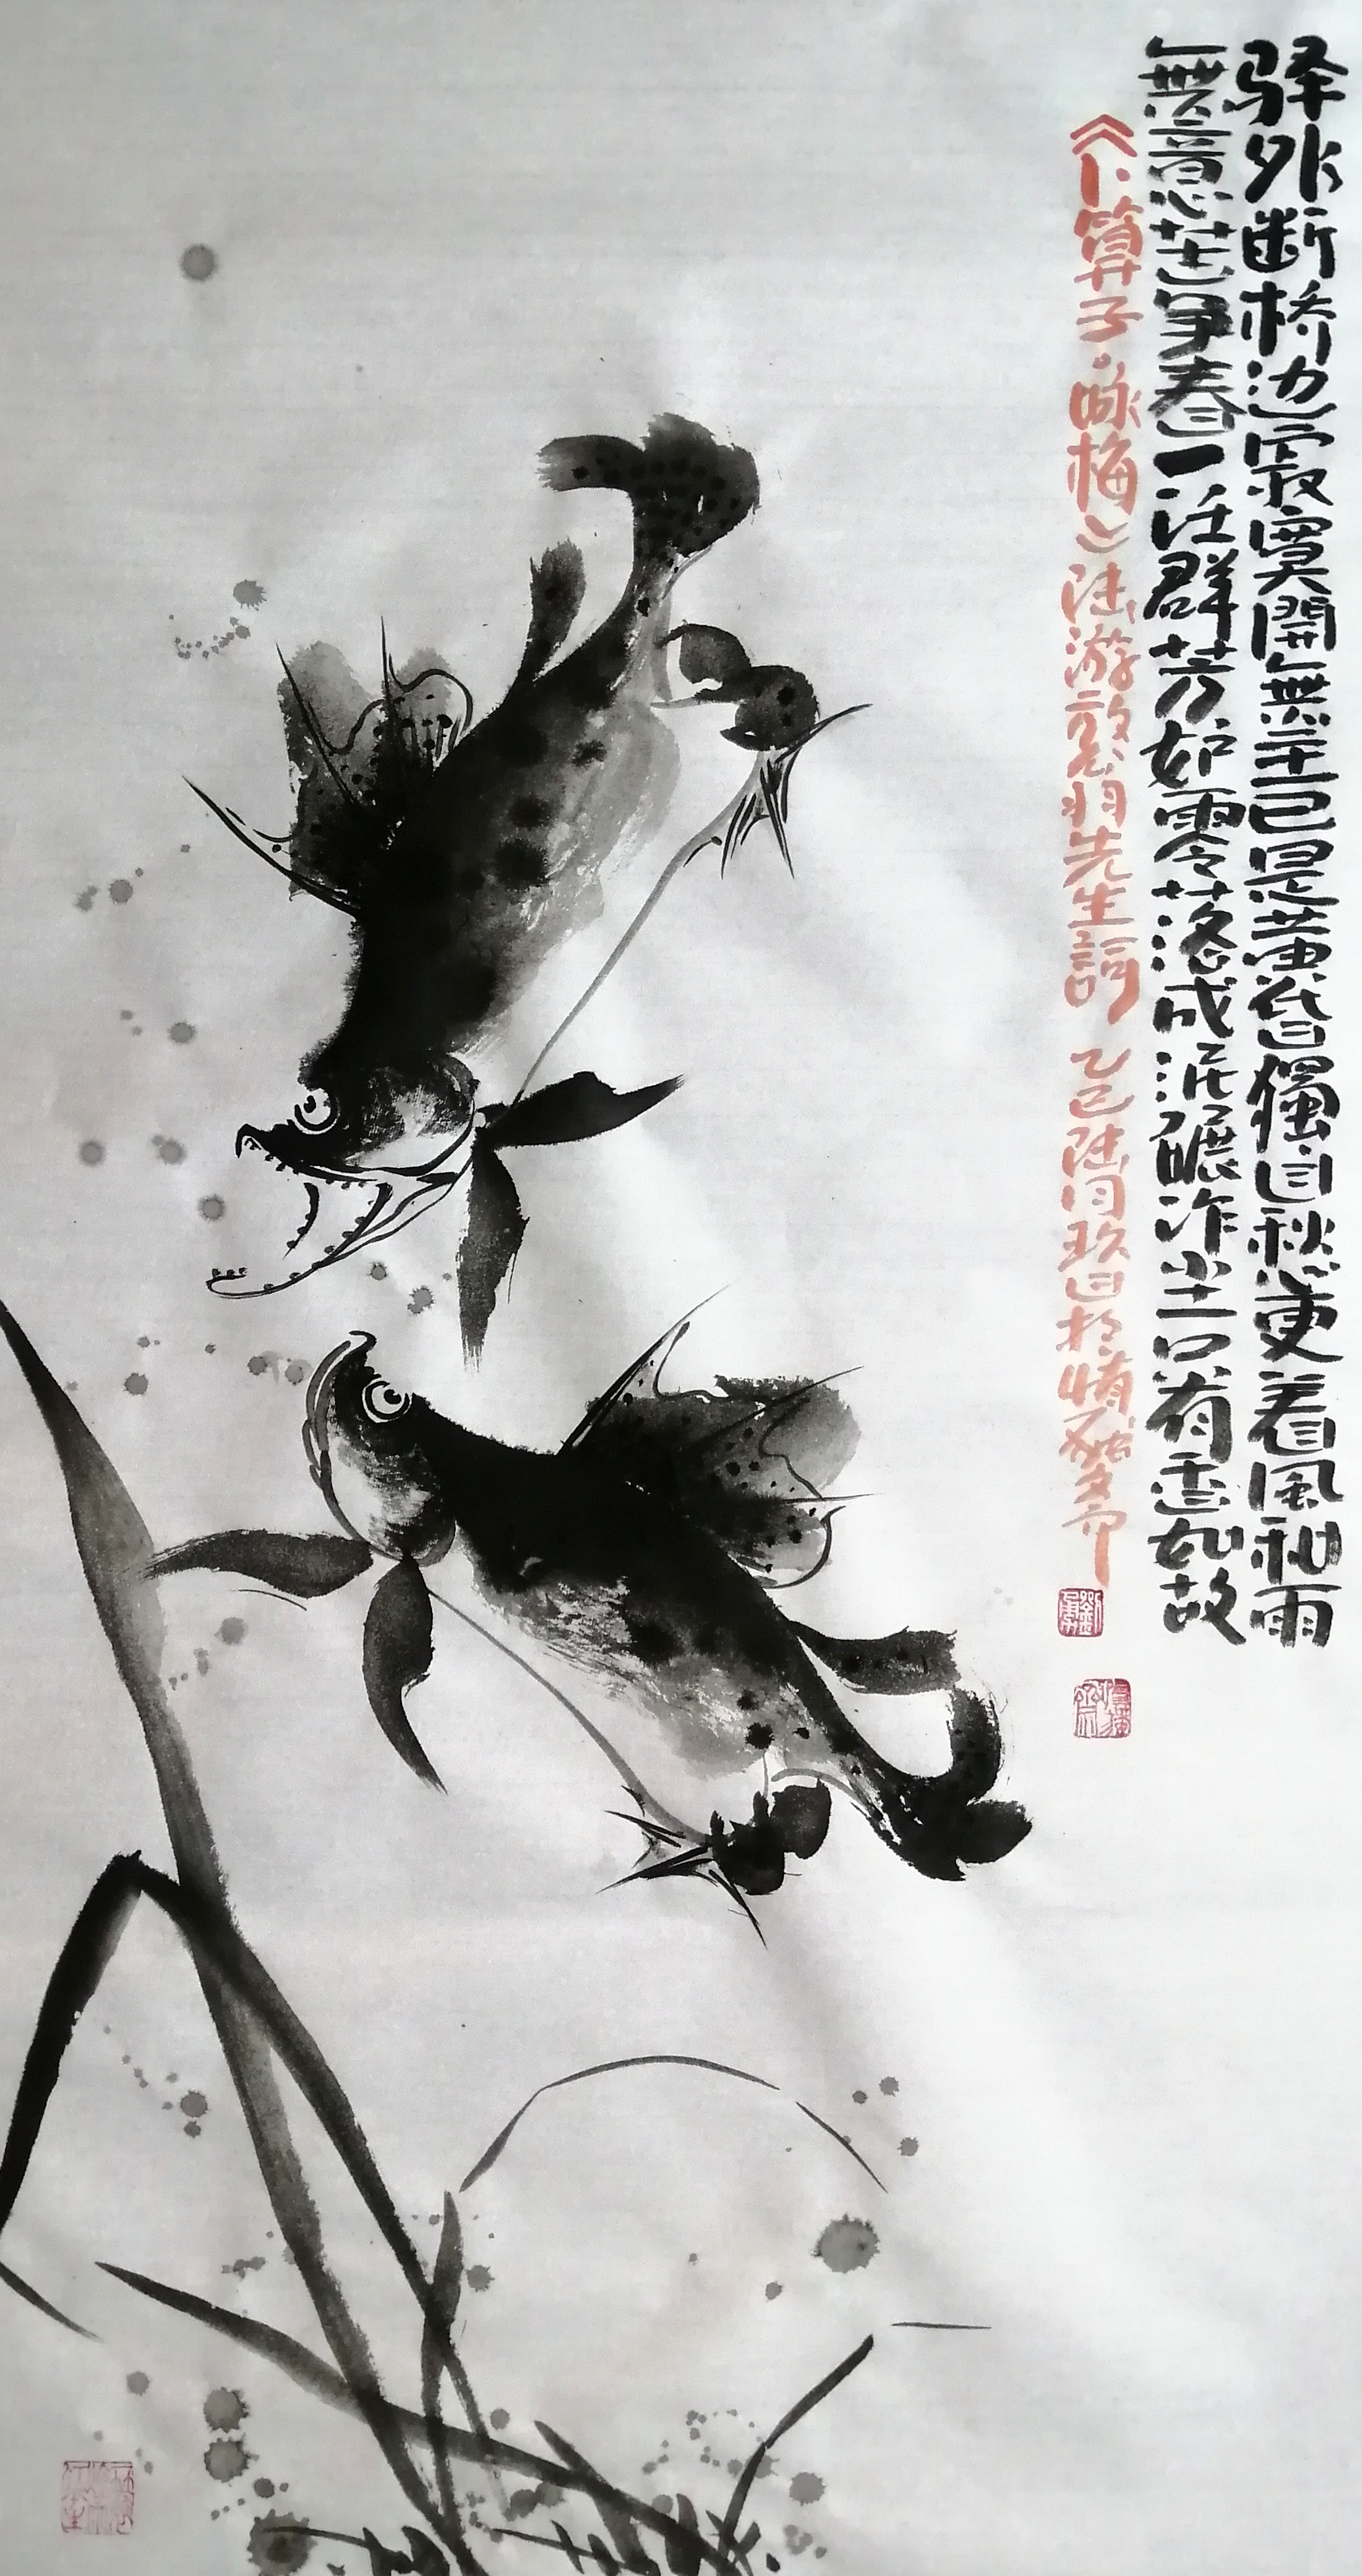 驿外断桥边寂寞開無主已是黄昏獨自愁更着風和雨
無意苦争春一任群芳妒零落成泥碾作尘只有香如故
《卜算子·咏梅》陆游放翁先生詞 乙巳陆月玖日於慎独斋